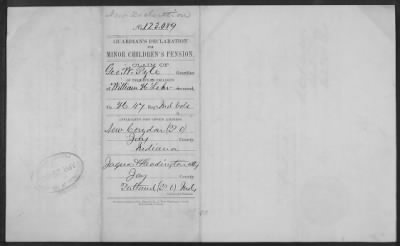 New Declaration
No 122,089
GUARDIAN'S DECLARATION
FOR
MINOR CHILDREN'S PENSION.
CLAIM OF
Geo. W. Pyle Guardian
OF THE MINOR CHILDREN
of William H. deceased,
Co. 47 Reg't Ind Vols
APPLICANT'S POST OFFICE ADDRESS:
New Corydon (P.O)
Jay County
Indiana
Jaqua & Headington attys
Jay
County
Portland (P.O) Ind